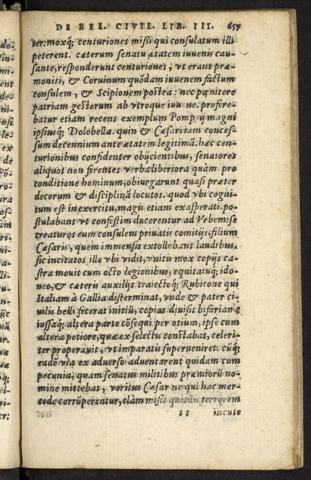 DE BEL. CIVIL. LIB. III. 659
uer: moxq́; centuriones miſi qui conſulatum illi
peterent. cæterum ſenatu ætatem iuuenis cau-
ſante, reſponderunt centuriones, ut erant præ-
moniti, & Coruinum quōdam iuuenem factum
conſulem, & Scipionem poſtea: nec pœnitere
patriam geſtorum ab utroque iuuene. profere-
batur etiam recens exemplum Pomp. q́ magni
ipſiusq́; Dolobellæ. quin & Cæſari iam conceſ-
ſum decennium ante ætatem legitimā. hæc cen-
turionibus confidenter obijcientibus, ſenatores
aliquot non ferentes uerba liberiora quàm pro
conditione hominum, obiurgarunt quaſi præter
decorum & diſciplinā locutos. quod ubi cogni-
tum eſt in exercitu, magis etiam exaſperati po-
ſtulabant ut confeſtim ducerentur ad Vrbem: ſe
creaturos eum conſulem priuatis comitijs, filium
Cæſaris, quem immenſis extollebant laudibus.
ſic incitatos ille ubi uidit, unitis mox copijs ca-
ſtra mouit cum octo legionibus, equitatuq́; ido-
neo, & cæteris auxilijs. traiectoq́; Rubicone qui
Italiam à Gallia diſterminat, unde & pater ci-
uilis belli fecerat initiū, copias diuiſit bifariam:
iuſſaq́; altera parte cōſequi per otium, ipſe cum
altera potiore, quæ ex ſelectu conſtabat, celeri-
ter properauit, ut imparatis ſuperueniret. cūq́;
eadē uia ex aduerſo aduentarent quidam cum
pecunia, quam ſenatus militibus præmiorū no-
mine mittebat, ueritus Cæſar ne qui hac mer-
cede corrūperentur, clàm miſit qui illis terrorem
incute